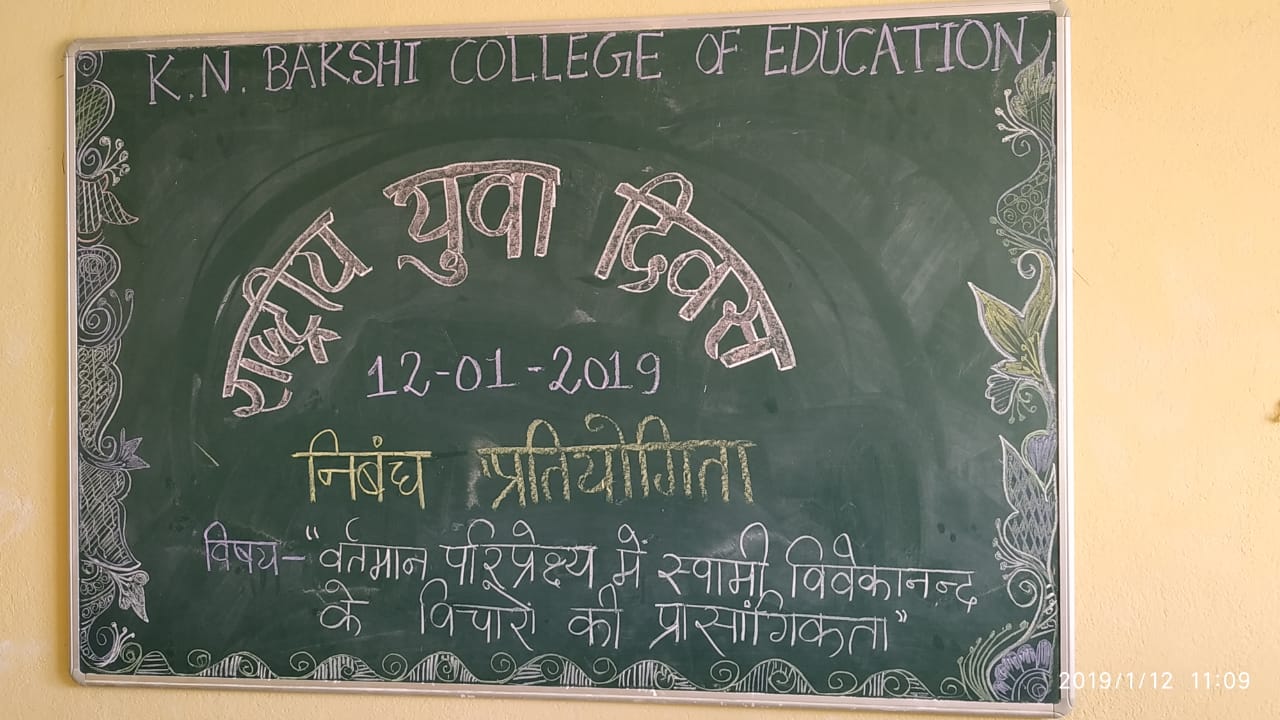 K.N. BAKSHI COLLEGE OF EDUCATION
राष्ट्रीय युवा दिवस
12-01-2019
निबंध प्रतियोगिता
विषय- "वर्तमान परिप्रेक्ष्य में स्वामी विवेकानन्द
के विचारों की प्रासांगिकता"
2019/1/12 11:09